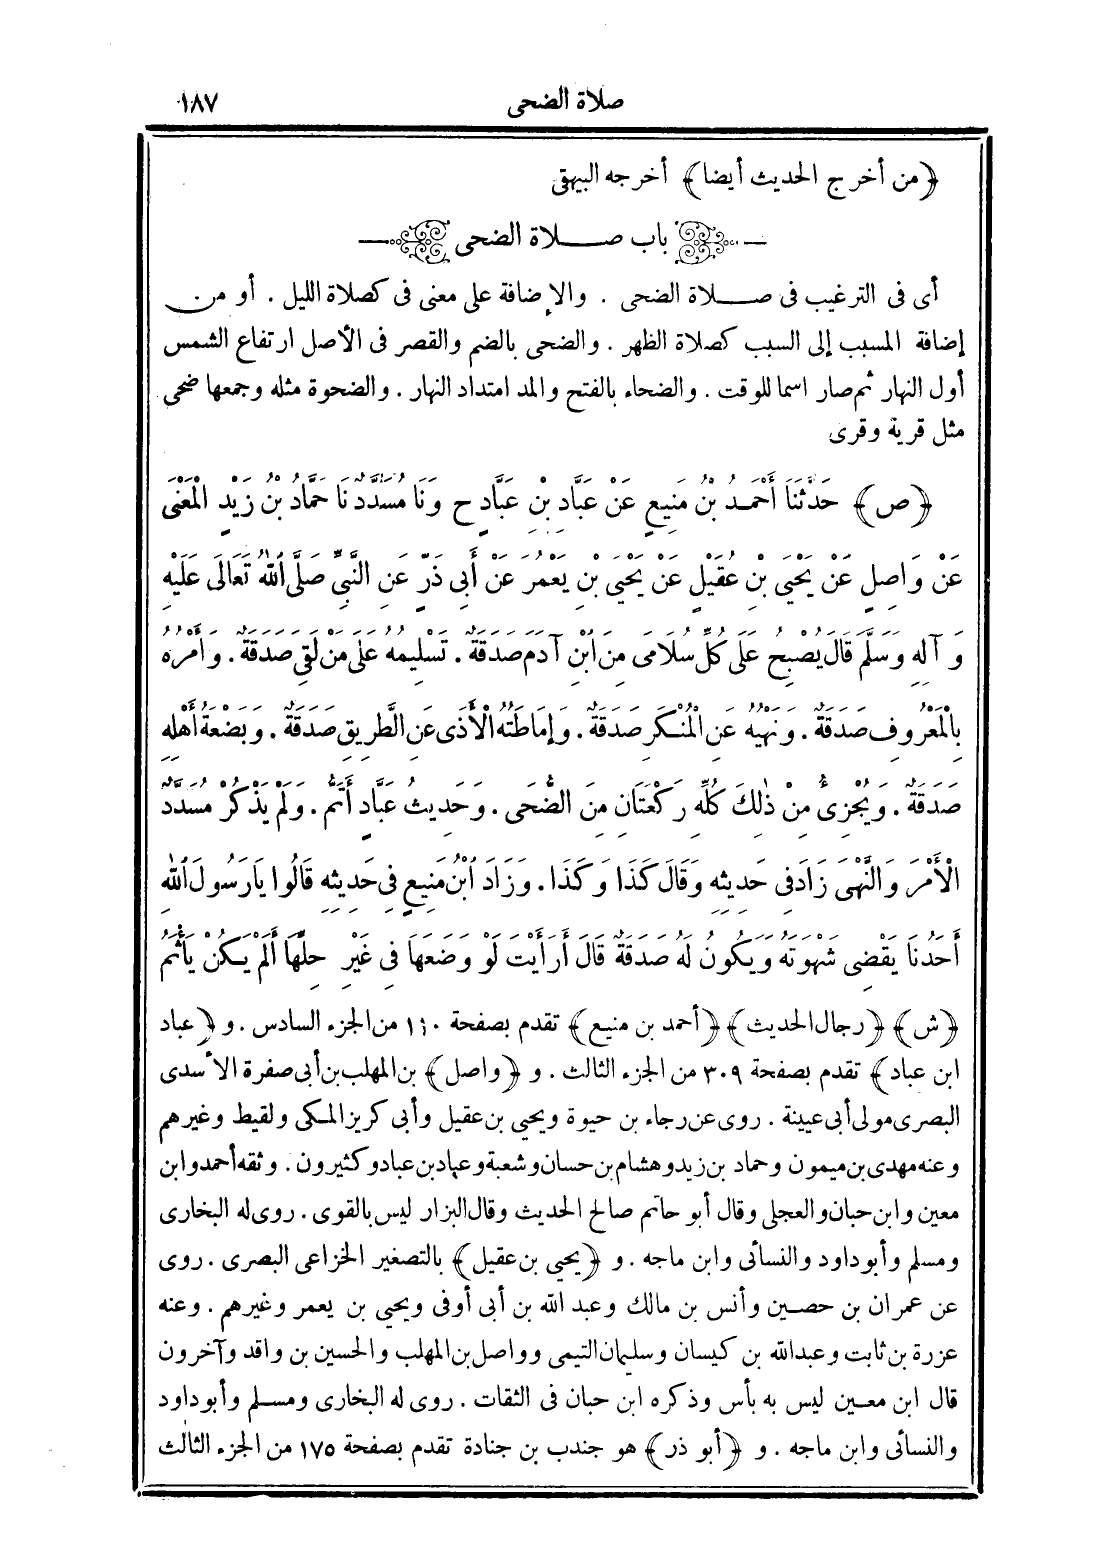 صلاة الضحى ١٨٧
﴿من أخرج الحديث أيضا﴾ أخرجه البيهقى
باب صلاة الضحى
أى فى الترغيب فى صلاة الضحى . والإضافة على معنى فى كصلاة الليل . أو من
إضافة المسبب إلى السبب كصلاة الظهر . والضحى بالضم والقصر فى الأصل ارتفاع الشمس
أول النهار ثم صار اسما للوقت . والضحاء بالفتح والمد امتداد النهار . والضحوة مثله وجمعها ضحى
مثل قرية وقرى
﴿ص﴾ حَدَّثَنَا أَحْمَدُ بْنُ مَنِيعٍ عَنْ عَبَّادِ بْنِ عَبَّادٍ ح وَنَا مُسَدَّدٌ نَا حَمَّادُ بْنُ زَيْدٍ الْمَعْنَى
عَنْ وَاصِلٍ عَنْ يَحْيَى بْنِ عُقَيْلٍ عَنْ يَحْيَى بْنِ يَعْمُرَ عَنْ أَبِى ذَرٍّ عَنِ النَّبِىِّ صَلَّى اللهُ تَعَالَى عَلَيْهِ
وَآلِهِ وَسَلَّمَ قَالَ يُصْبِحُ عَلَى كُلِّ سُلَامَى مِنَ ابْنِ آدَمَ صَدَقَةٌ . تَسْلِيمُهُ عَلَى مَنْ لَقِىَ صَدَقَةٌ . وَأَمْرُهُ
بِالْمَعْرُوفِ صَدَقَةٌ . وَنَهْيُهُ عَنِ الْمُنْكَرِ صَدَقَةٌ . وَإِمَاطَتُهُ الْأَذَى عَنِ الطَّرِيقِ صَدَقَةٌ . وَبَضْعَةُ أَهْلِهِ
صَدَقَةٌ . وَيُجْزِئُ مِنْ ذٰلِكَ كُلِّهِ رَكْعَتَانِ مِنَ الضُّحَى . وَحَدِيثُ عَبَّادٍ أَتَمُّ . وَلَمْ يَذْكُرْ مُسَدَّدٌ
الْأَمْرَ وَالنَّهْىَ زَادَ فِى حَدِيثِهِ وَقَالَ كَذَا وَكَذَا . وَزَادَ ابْنُ مَنِيعٍ فِى حَدِيثِهِ قَالُوا يَارَسُولَ اللهِ
أَحَدُنَا يَقْضِى شَهْوَتَهُ وَيَكُونُ لَهُ صَدَقَةٌ قَالَ أَرَأَيْتَ لَوْ وَضَعَهَا فِى غَيْرِ حِلِّهَا أَلَمْ يَكُنْ يَأْثَمُ
﴿ش﴾ ﴿رجال الحديث﴾ ﴿أحمد بن منيع﴾ تقدم بصفحة ١٤٠ من الجزء السادس . و ﴿عباد
ابن عباد﴾ تقدم بصفحة ٣٠٩ من الجزء الثالث . و ﴿واصل﴾ بن المهلب بن أبى صفرة الأسدى
البصرى مولى أبى عيينة . روى عن رجاء بن حيوة ويحيى بن عقيل وأبى كريز المكى ولقيط وغيرهم
وعنه مهدى بن ميمون وحماد بن زيد وهشام بن حسان وشعبة وعباد بن عباد وكثيرون . وثقه أحمد وابن
معين وابن حبان والعجلى وقال أبو حاتم صالح الحديث وقال البزار ليس بالقوى . روى له البخارى
ومسلم وأبو داود والنسائى وابن ماجه . و ﴿يحيى بن عقيل﴾ بالتصغير الخزاعى البصرى . روى
عن عمران بن حصين وأنس بن مالك وعبد الله بن أبى أوفى ويحيى بن يعمر وغيرهم . وعنه
عزرة بن ثابت وعبد الله بن كيسان وسليمان التيمى وواصل بن المهلب والحسين بن واقد وآخرون
قال ابن معين ليس به بأس وذكره ابن حبان فى الثقات . روى له البخارى ومسلم وأبو داود
والنسائى وابن ماجه . و ﴿أبو ذر﴾ هو جندب بن جنادة تقدم بصفحة ١٧٥ من الجزء الثالث